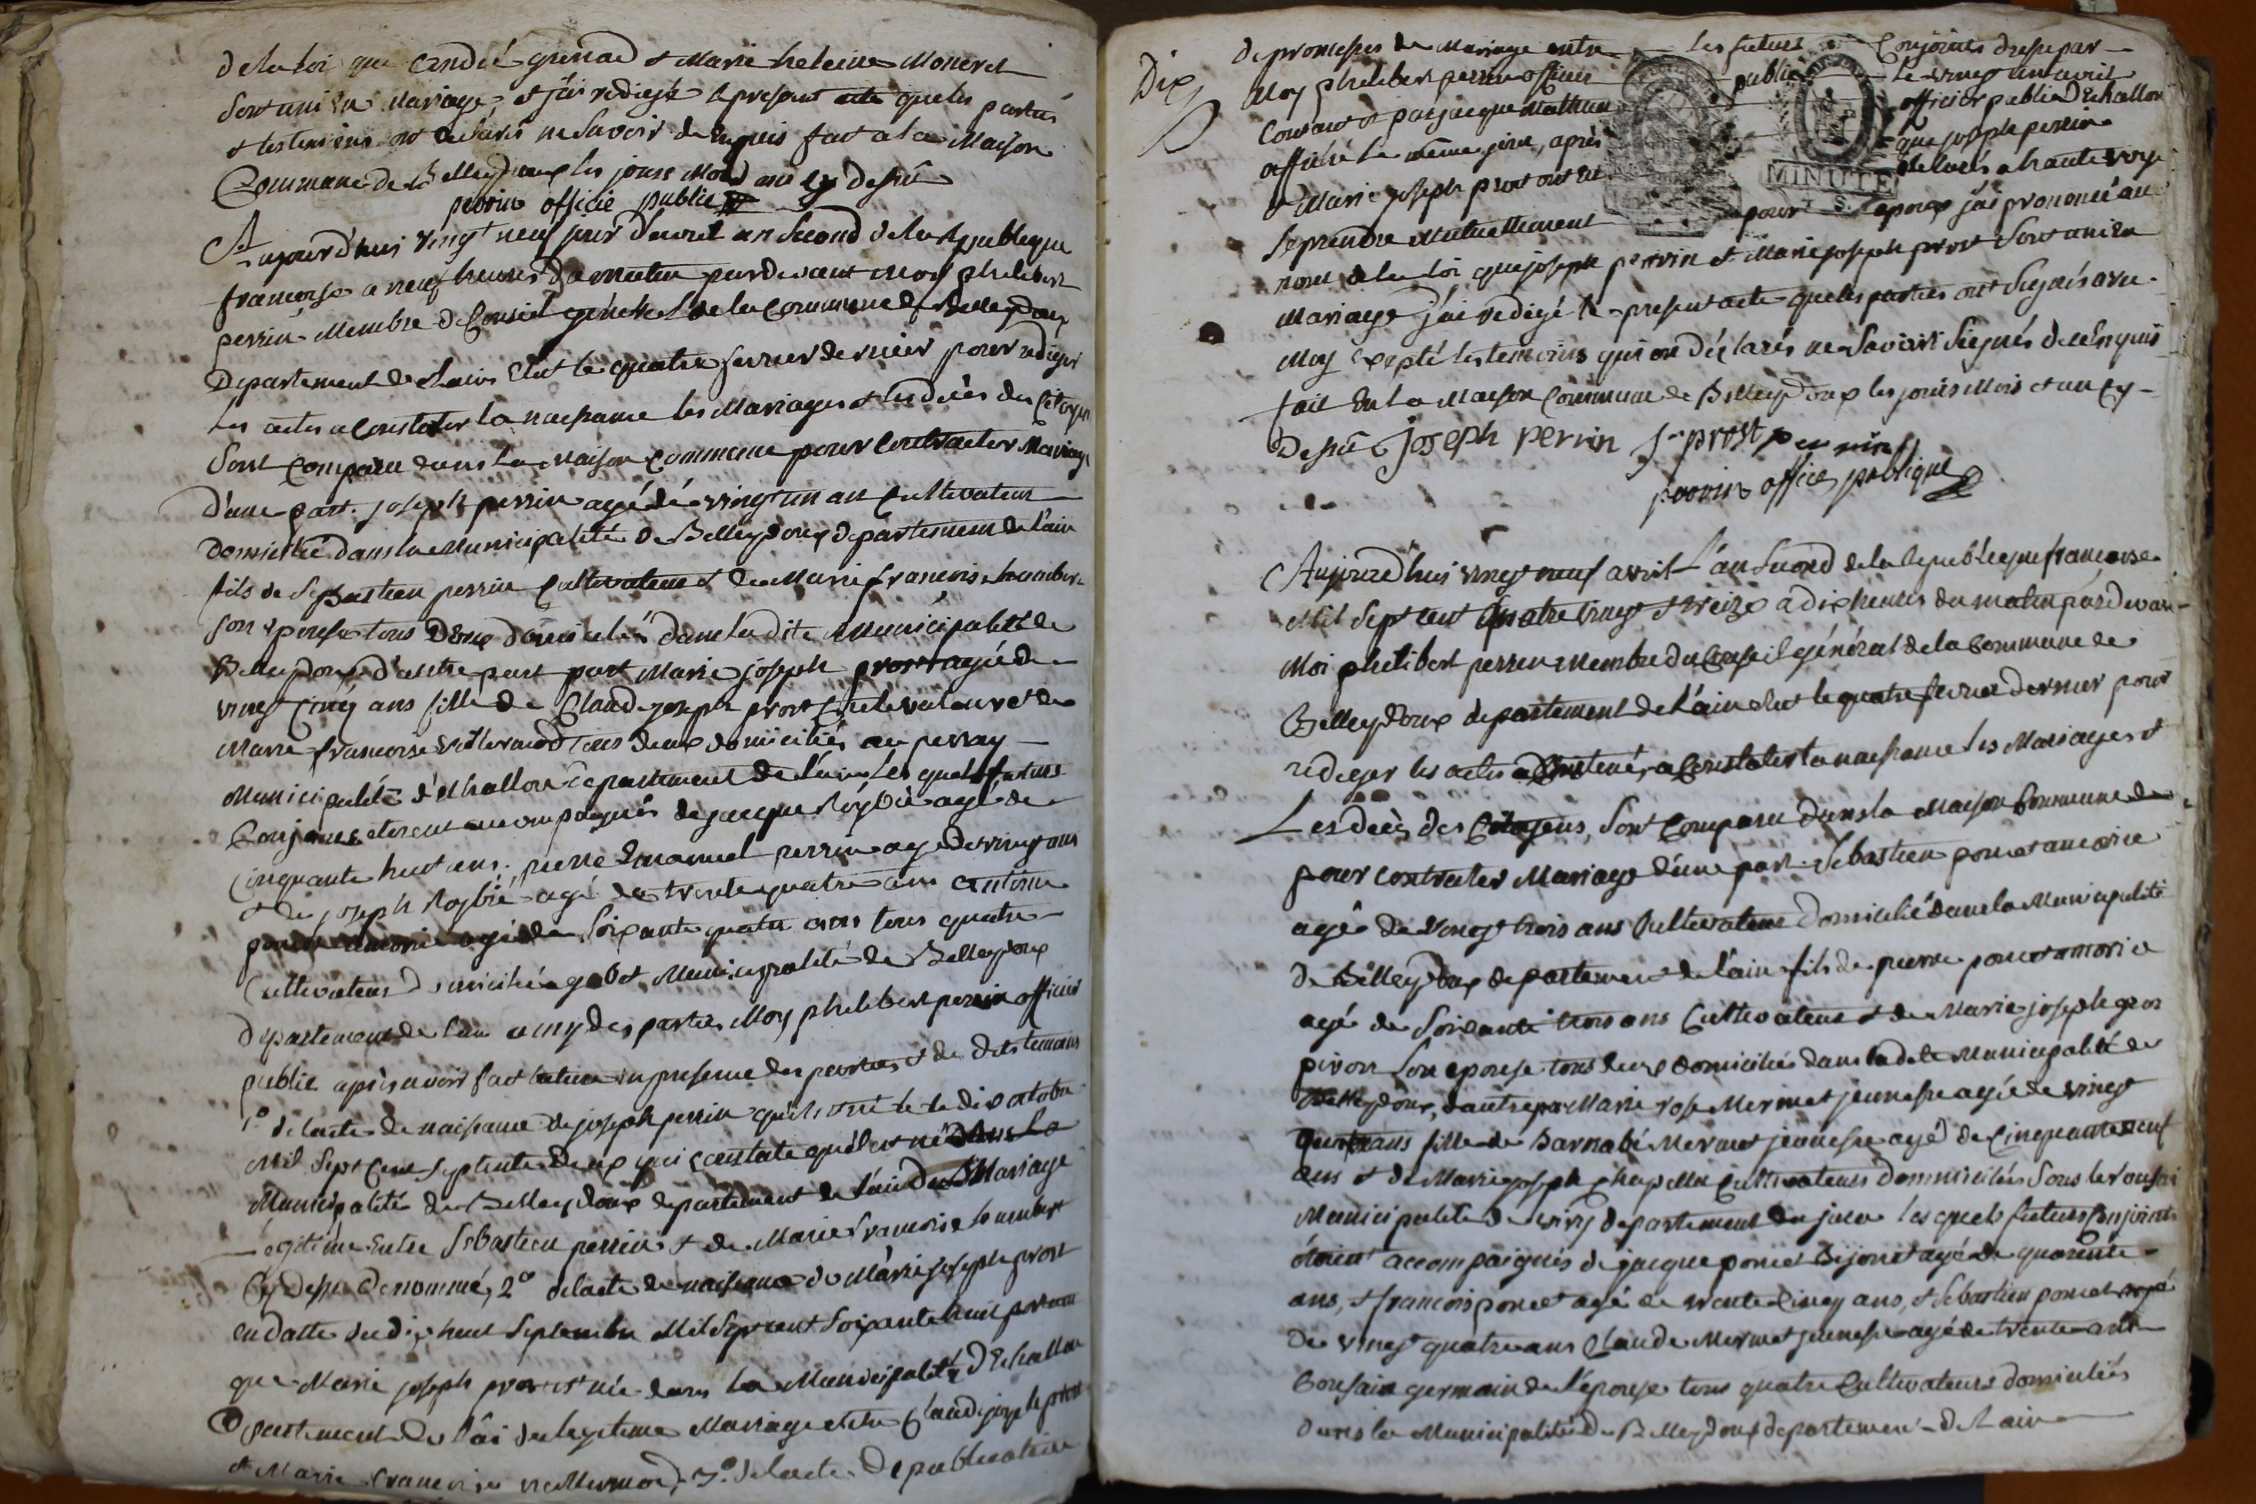 de la loi que André grenad et Marie heleine Moneret
sont unis en Mariage, et j'ai redigé le present acte que les parties
et les temoins ont declarés ne savoir de Enquis fait a la Maison
Commune de Belleydoux les jours Mois ans cy dessû
perrin officié public
Aujourd'hui vingt neuf jour d'avril an second de la Republeque
francoise a neuf heures du matin pardevant moy philibert
perrin Membre du Conseil général de la Commune de Belleydoux
Departement de l'ain elut le quatre fevrier dernier pour rediger
les actes a Constater la naissance les Mariages et les décès des Citoyens
sont comparu dans la Maison Commune pour contracter Mariage
d'une part. joseph perrin agé de vingt un an Cultivateur
domicilié dans la Municipalité de Belleydoux departement de l'ain
fils de Sebastien perrin Cultivateur et de Marie francoise humbert
son epouse tous deux domiciliés dans la dite Municipalité de
Belleydoux d'autre part part Marie joseph prost agée de
vingt cinq ans fille de Claude joseph prost Cultivateur et de
Marie francoise vuillermoz tous deux domiciliés au perray
Municipalité d'Echallon departement de l'ain Les quels futurs
Conjoins etoient accompagnés de jacque Roybié agé de
Cinquante huit ans, pierre Emanuel perrin agé de vingt ans
et de joseph Roybié agé de trente quatre ans antoine
poncet amorie agé de soixante quatre ans tous quatre
Cultivateurs domiciliés a gobet Municipalité de Belleydoux
departement de l'ain amy des parties Moy philibert perrin officier
public après avoir fait lecture en presence des parties et de dits temoins
1° de l'acte de naissance de joseph perrin qu'il est né le dix octobre
Mil sept cent septente deux qui constate qu'il est né dans la
Municipalité de Belleydoux departement de l'ain du Mariage
legitime entre Sebastien perrin et de Marie francoise humbert
Cy dessû denommé, 2° de l'acte de naissance de Marie joseph prost
en datte du dix huit septembre Mil sept cent soixante huit
que Marie joseph prost est née dans la Municipalité d'Echallon
Departement de l'ain du legitime Mariage entre Claude joseph prost
et Marie francoise vuillermoz, 3° de l'acte de publication
Dix
de promesses de Mariage entre les futurs Conjoints dressé par
Moy philibert perrin officier public le vingt un avril
Courant et par jacque Mathieu officier public d'Echallon
affiché le même jour, après que joseph perrin
et Marie joseph prost ont declarés a haute voye
se prendre Mutuellement pour epoux j'ai prononcé au
nom de la loi que joseph perrin et Marie joseph prost sont unis en
Mariage j'ai redigé le present acte que les parties ont signés avec
Moy excepté les temoins qui on declarés ne savoir signés de Enquis
fait En la Maison Commune de Belleydoux les jours Mois et an Cy
Dessû joseph perrin j prost perrin
perrin officié publique
MINUTE
Aujourd'hui vingt neuf avril l'an second de la Republeque francoise
Mil sept cent quatre vingt et treize a dix heures du matin pardevant
Moi philibert perrin Membre du Conseil général de la Commune de
Belleydoux departement de l'ain elut le quatre fevrier dernier pour
rediger les actes a Constater la naissance les Mariages et
Les décès des Citoyens, sont comparu dans la Maison Commune de
pour contracter Mariage d'une part Sebastien poncet amorie
agé de vingt trois ans Cultivateur domicilié dans la Municipalité
de Belleydoux departement de l'ain fils de pierre poncet amorie
agé de soixante trois ans Cultivateur et de Marie joseph gros
piron son epouse tous deux domiciliés dans la dite Municipalité de
Belleydoux, d'autre part Marie rose Mermet jeunesse agée de vingt
quatre ans fille de Barnabé Mermet jeunesse agé de Cinquante neuf
ans et de Marie joseph Chapellu Cultivateurs domiciliés sous le rousset
Municipalité de viry departement du jura les quels futurs Conjoints
étoient accompaignés de jacque poncet bijonet agé de quarente
ans, et francois poncet agé de trente cinq ans, et Sebastien poncet agé
de vingt quatre ans Claude Mermet jeunesse agé de trente ans
Cousain germain de l'épouse tous quatre Cultivateurs domiciliés
dans la Municipalité de Belleydoux departement de l'ain